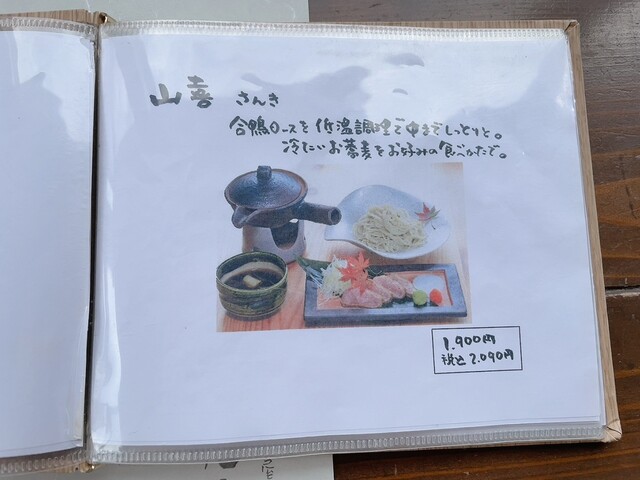 山喜 さんき
合鴨ロースを低温調理で中までしっとりと。
冷たいお蕎麦をお好みの食べかたで。
1,900円
税込2,090円